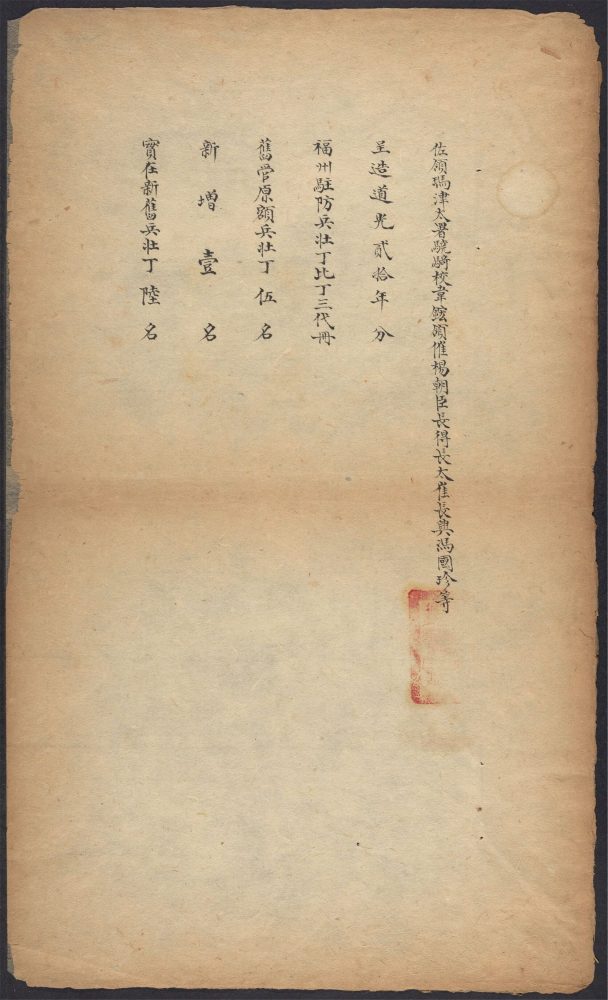 佐領瑞津太署驍騎校韋鋐領催楊朝臣長得長太崔長興馮國珍等
呈造道光貳拾年分
福州駐防兵壯丁比丁三代冊
舊管原額兵壯丁伍名
新增壹名
實在新舊兵壯丁陸名